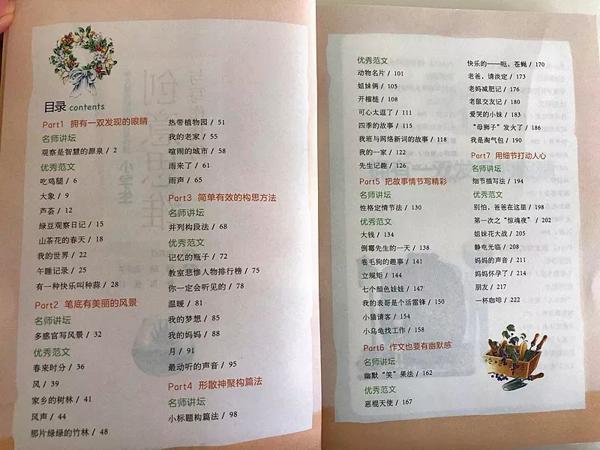 目录 contents
Part1 拥有一双发现的眼睛
名师讲坛
观察是智慧的源泉 / 2
优秀范文
吃鸡腿 / 6
大象 / 9
芦荟 / 12
绿豆观察日记 / 15
山茶花的春天 / 18
我的世界 / 22
午睡记录 / 25
有一种快乐叫种蒜 / 28
Part2 笔底有美丽的风景
名师讲坛
多感官写风景 / 32
优秀范文
春来时分 / 36
风 / 39
家乡的树林 / 41
风声 / 44
那片绿绿的竹林 / 48
热带植物园 / 51
我的老家 / 55
喧闹的城市 / 58
雨来了 / 61
雨声 / 65
Part3 简单有效的构思方法
名师讲坛
并列构段法 / 68
优秀范文
记忆的瓶子 / 72
教室悲惨人物排行榜 / 75
你一定会听见的 / 78
温暖 / 81
我的梦想 / 85
我的妈妈 / 88
月 / 91
最动听的声音 / 95
Part4 形散神聚构篇法
名师讲坛
小标题构篇法 / 98
优秀范文
动物名片 / 101
姐妹俩 / 105
开福桂 / 108
可心太逗了 / 111
四季的故事 / 115
我班与网络新词的故事 / 118
我的一家 / 122
先生记趣 / 126
Part5 把故事情节写精彩
名师讲坛
性格定情节法 / 130
优秀范文
大钱 / 134
倒霉先生的一天 / 138
卷毛狗的趣事 / 141
立规矩 / 144
七个颜色娃娃 / 147
我的表哥是个活雷锋 / 150
小猫请客 / 154
小乌龟找工作 / 158
Part6 作文也要有幽默感
名师讲坛
幽默“笑”果法 / 162
优秀范文
恶棍天使 / 167
快乐的——呃，苍蝇 / 170
老爸，请淡定 / 173
老妈减肥记 / 176
老鼠交友记 / 180
爱哭的小妹 / 183
“母狮子”发火了 / 186
我是淘气包 / 190
Part7 用细节打动人心
名师讲坛
细节描写法 / 194
优秀范文
别怕，爸爸在这里 / 198
第一次之“惊魂夜” / 202
姐妹花大战 / 205
静电光临 / 208
妈妈的声音 / 211
妈妈怀孕了 / 214
朋友 / 217
一杯咖啡 / 222